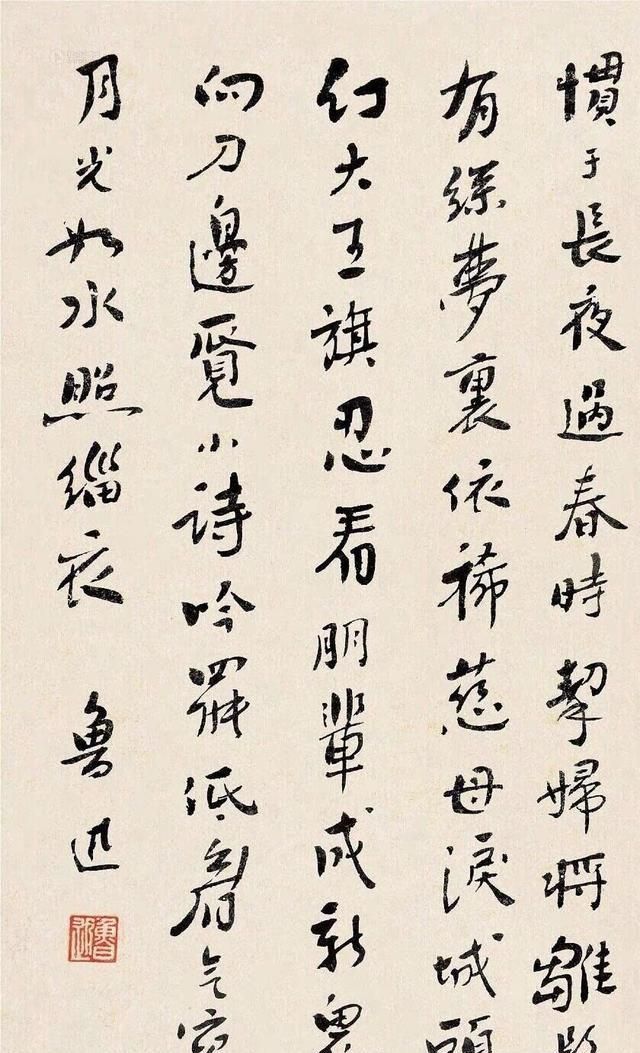 慣于長夜過春時挈婦將雛
有絲夢裏依稀慈母淚城頭
幻大王旗忍看朋輩成新鬼
向刀邊覓小詩吟罷低眉无寫
月光如水照緇衣
魯迅
魯迅